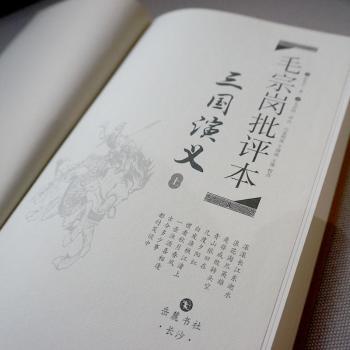 毛宗岗批评本
三国演义
上
滚滚长江东逝水
浪花淘尽英雄
是非成败转头空
青山依旧在
几度夕阳红
白发渔樵江渚上
惯看秋月春风
一壶浊酒喜相逢
古今多少事
都付笑谈中
岳麓书社
·长沙·